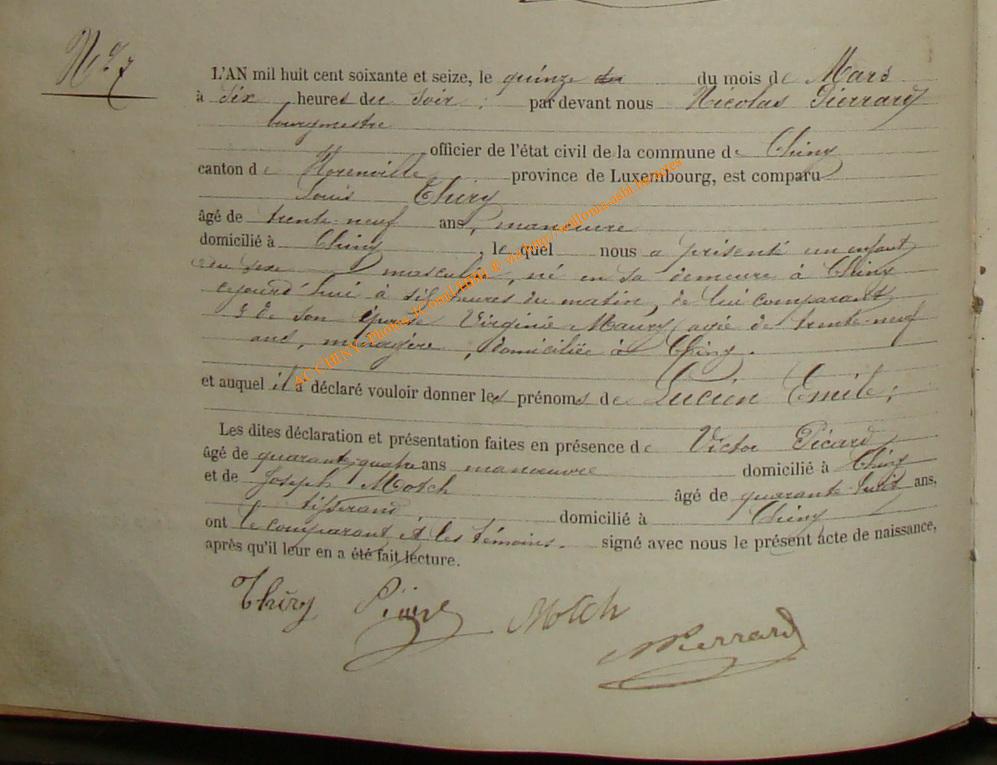 N° 7
L'AN mil huit cent soixante et seize, le quinze du du mois de Mars
à six heures du soir ; par devant nous Nicolas Pierrard
bourgmestre
officier de l'état civil de la commune de Chiny
canton de Florenville province de Luxembourg, est comparu
Louis Thiry
âgé de trente-neuf ans, manœuvre
domicilié à Chiny, lequel nous a présenté un enfant
du sexe masculin, né en sa demeure à Chiny
cejourd'hui à six heures du matin, de lui comparant
& de son épouse Virginie Maury, agée de trente-neuf
ans, ménagère, domiciliée à Chiny.
et auquel il a déclaré vouloir donner les prénoms de Lucien Emile ;
Les dites déclaration et présentation faites en présence de Victor Picard
âgé de quarante-quatre ans manœuvre domicilié à Chiny
et de Joseph Motch âgé de quarante-huit ans,
tisserand, domicilié à Chiny
ont le comparant et les témoins signé avec nous le présent acte de naissance,
après qu'il leur en a été fait lecture.
Thiry Picard Motch
NPierrard